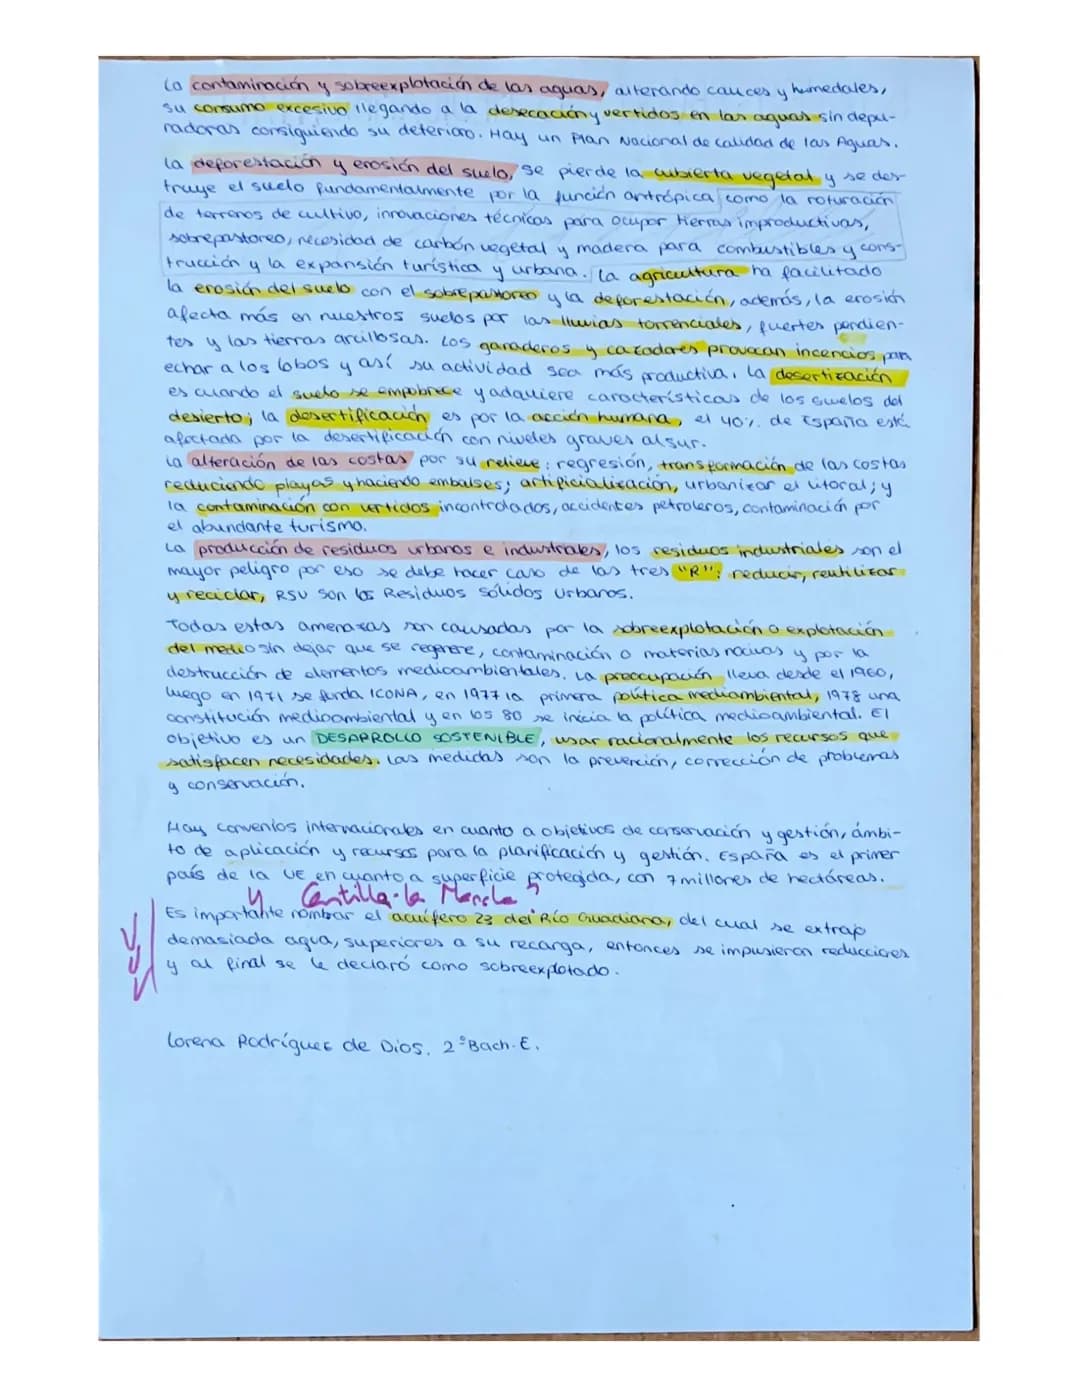 La contaminación y sobreexplotación de las aguas, alterando cauces y humedales,
su consumo excesivo llegando a la desecación y vertidos en las aguas sin depu-
radoras consiguiendo su deterioro. Hay un Plan Nacional de calidad de las Aguas.
La deforestación y erosión del suelo, se pierde la cubierta vegetal y se des-
truye el suelo fundamentalmente por la función antrópica como la roturación
de terrenos de cultivo, innovaciones técnicas para ocupar tierras improductivas,
sobrepastoreo, necesidad de carbón vegetal y madera para combustibles y cons-
trucción y la expansión turística y urbana. La agricultura ha facilitado
la erosión del suelo con el sobrepastoreo y la deforestación, además, la erosión
afecta más en nuestros suelos por las lluvias torrenciales, fuertes pendien-
tes y las tierras arcillosas. Los ganaderos y cazadores provocan incencios para
echar a los lobos y así su actividad sea más productiva. La desertización
es cuando el suelo se empobrece y adquiere características de los suelos del
desierto; la desertificación es por la acción humana, el 40% de España está
afectada por la desertificación con niveles graves al sur.
La alteración de las costas por su relieve: regresión, transformación de las costas
reduciendo playas y haciendo embalses; artificialización, urbanizar el litoral; y
la contaminación con vertidos incontrolados, accidentes petroleros, contaminación por
el abundante turismo.
La producción de residuos urbanos e industriales, los residuos industriales son el
mayor peligro por eso se debe hacer caso de las tres "R": reducir, reutilizar
y reciclar, RSU son los Residuos Sólidos Urbanos.
Todas estas amenazas son causadas por la sobreexplotación o explotación
del medio sin dejar que se regenere, contaminación o materias nocivas y por la
destrucción de elementos medioambientales. La preocupación lleva desde el 1960,
luego en 1971 se funda ICONA, en 1977 la primera política mediambiental, 1978 una
constitución medioambiental y en los 80 se inicia la política medioambiental. El
objetivo es un DESARROLLO SOSTENIBLE, usar racionalmente los recursos que
satisfacen necesidades. Las medidas son la prevención, corrección de problemas
y conservación.
Hay convenios internacionales en cuanto a objetivos de conservación y gestión, ámbi-
to de aplicación y recursos para la planificación y gestión. España es el primer
país de la UE en cuanto a superficie protegida, con 7 millones de hectáreas.
y Cantilla-la Mancha
Es importante nombar el acuífero 23 del Río Guadiana, del cual se extrajo
demasiada agua, superiores a su recarga, entonces se impusieron reducciones
y al final se le declaró como sobreexplotado.
Lorena Rodríguez de Dios. 2º Bach. E.